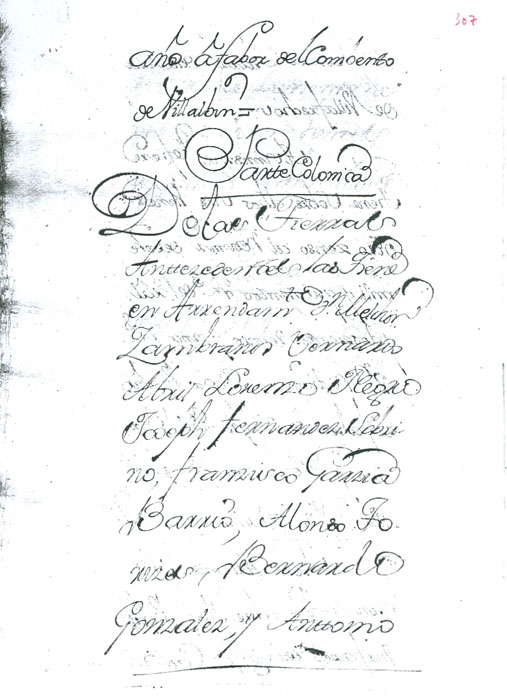 307
año â fabor del Combento
de Villalbin =
Parte Colonica
De las Tierras
Anttezedentes las tiene
en Arrendam.to D.n Melchor
Zambrano Bernardo
Abril Lorenzo Negro
Joseph fernandez Sobri-
no, franzisco Garzia
Barrio, Alonso To-
rizes, Bernardo
Gonzalez, y Anttonio